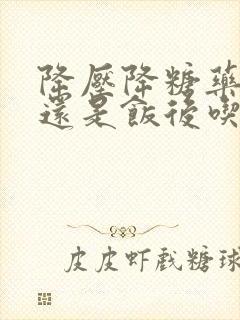 降壓降糖藥
還是飯後喫
皮皮虾戲糖球